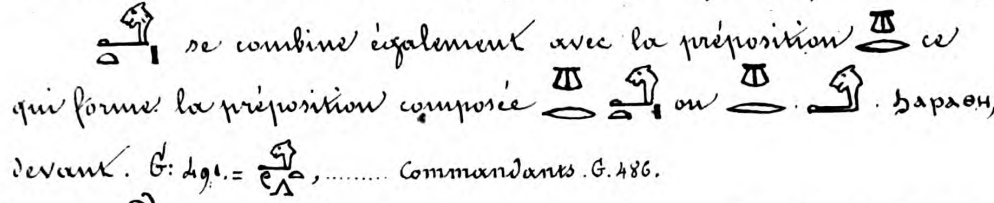 𓄂𓏏𓏤 se combine également avec la préposition 𓌨𓂋 ce
qui forme la préposition composée 𓌨𓂋 𓄂𓏏𓏤 ou 𓌨𓂋 . 𓄂 . ϧⲁⲣⲁⲑⲏ,
devant. G: 491. = , ......... Commandants. G. 486.